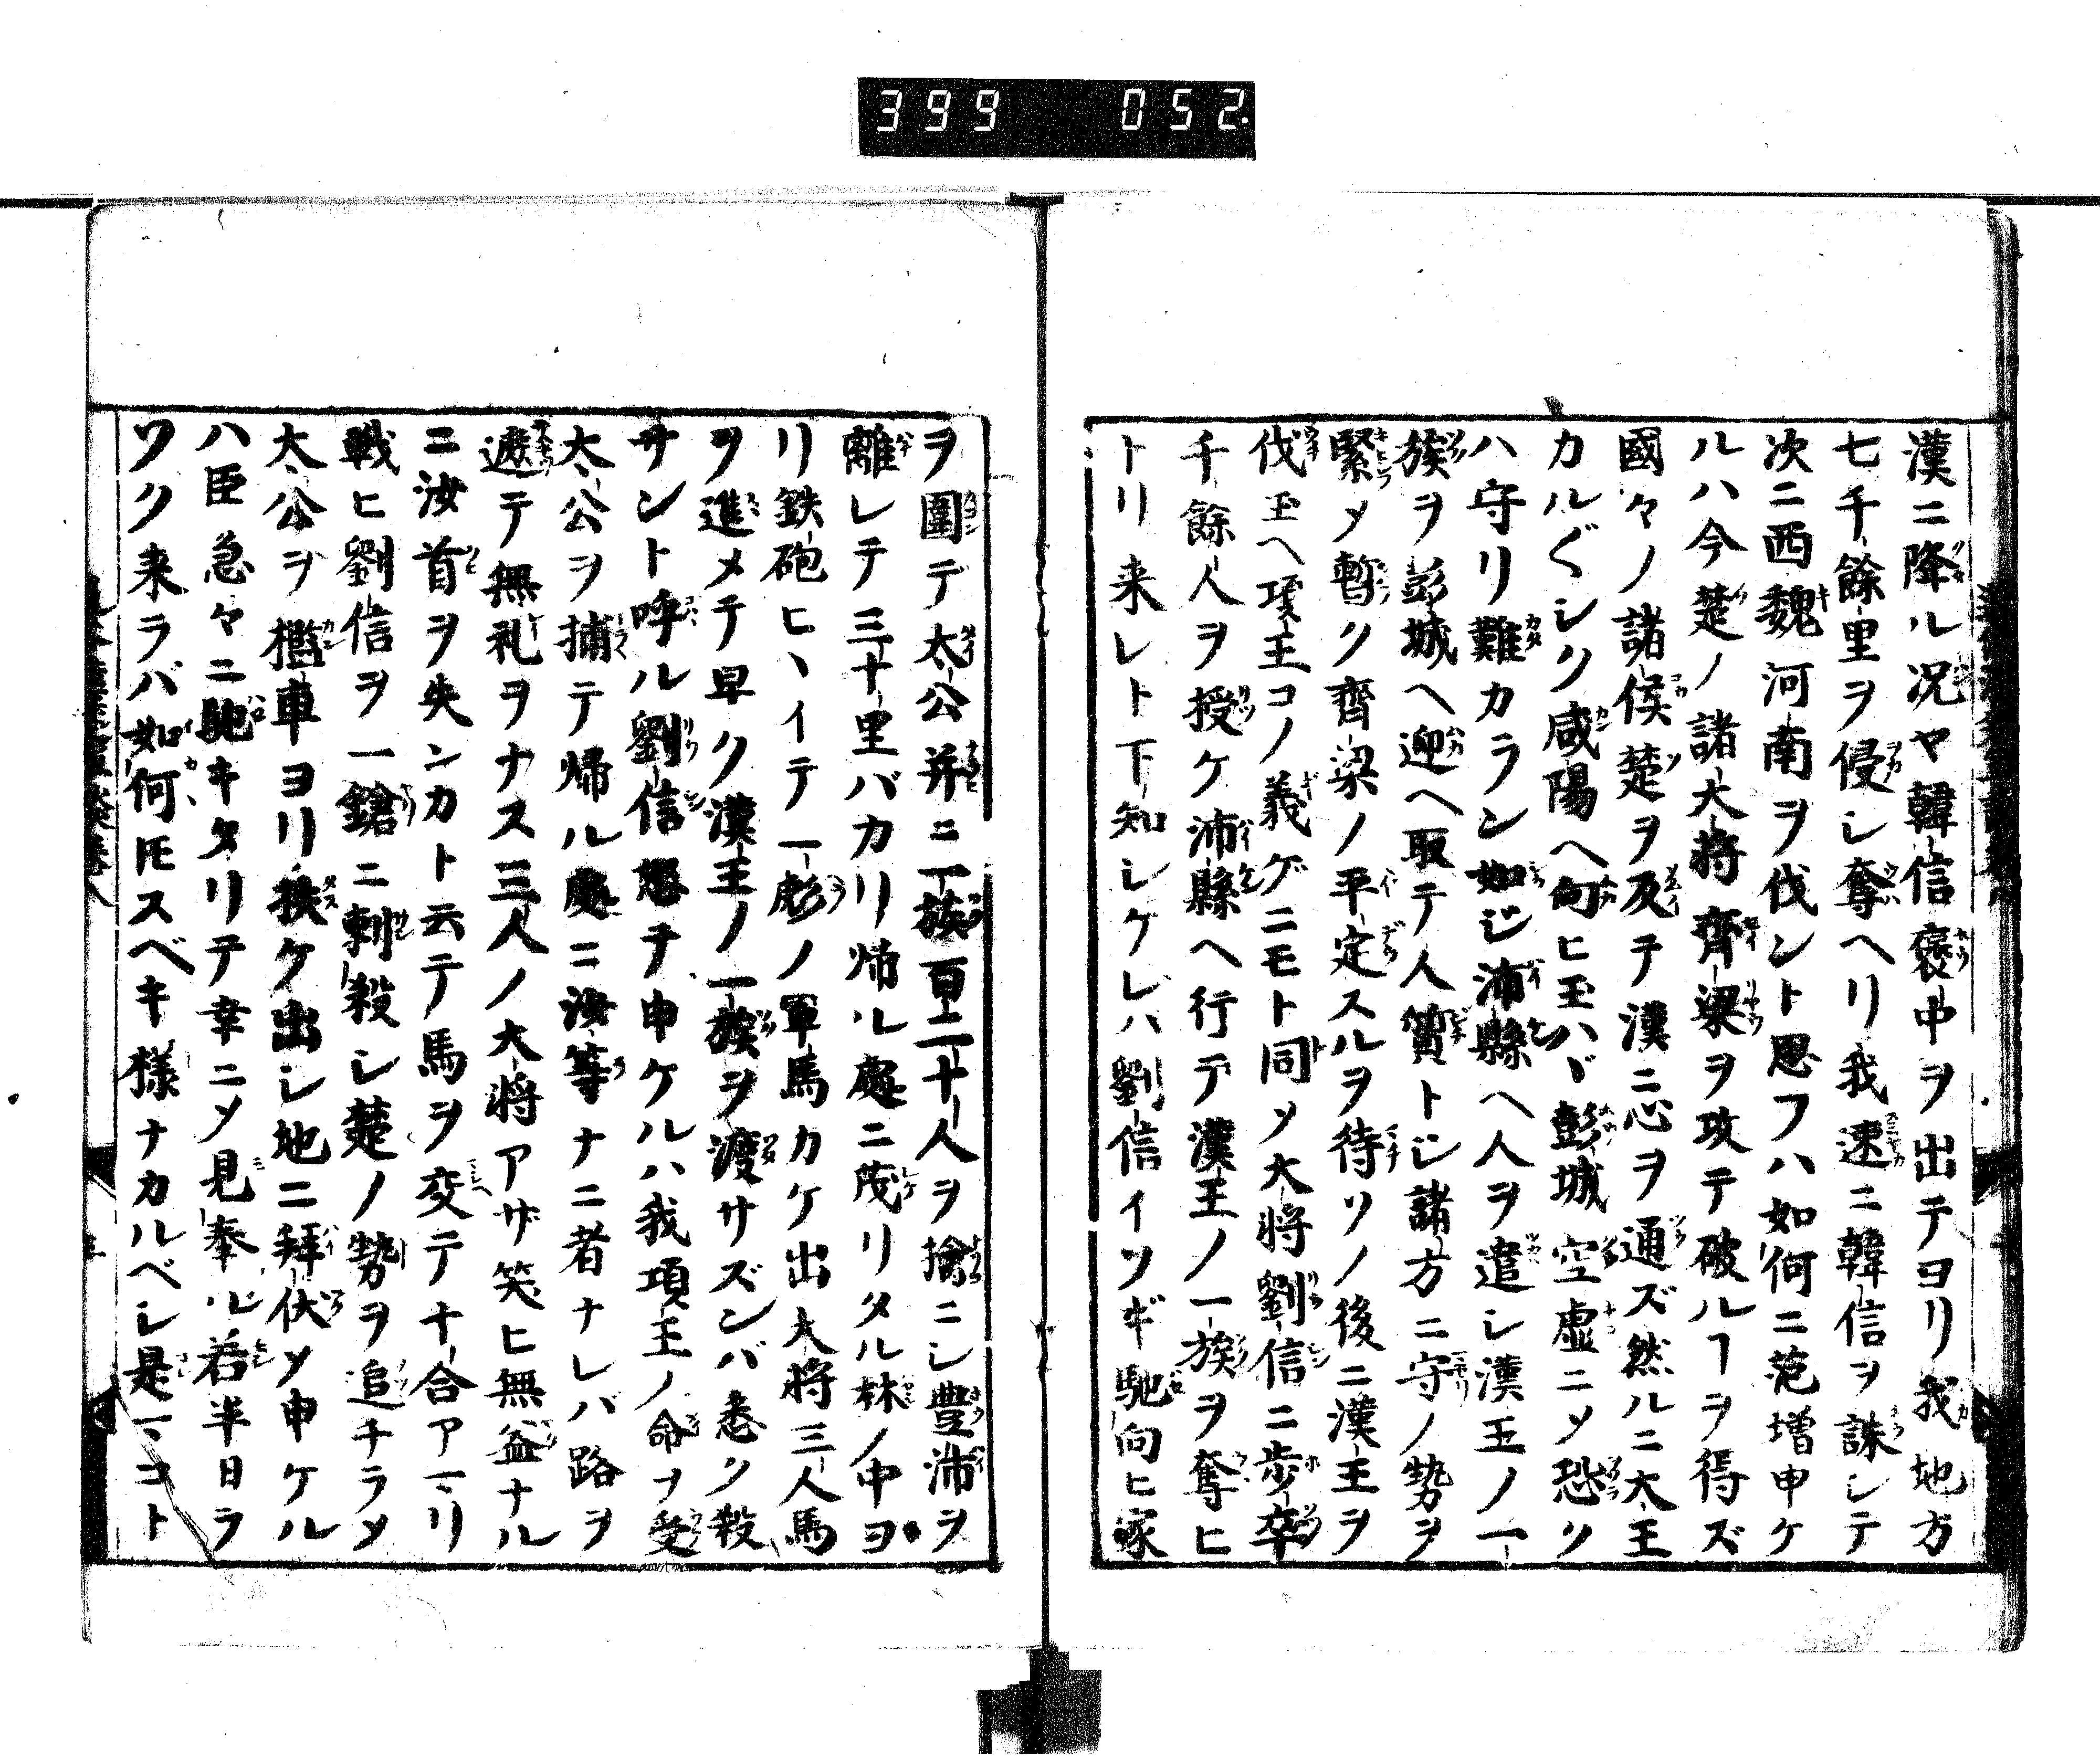 399 052.
漢ニ降ル况ヤ韓信褒中ヲ出テヨリ我地方
七千餘里ヲ侵シ奪ヘリ我速ニ韓信ヲ誅シテ
次ニ西魏河南ヲ伐ント思フハ如何ニ范増申ケ
ルハ今楚ノ諸大将齊梁ヲ攻テ破ルヿヲ得ズ
國々ノ諸侯楚ヲ反テ漢ニ心ヲ通ズ然ルニ大王
カル〲シク咸陽ヘ向ヒ玉ハヾ彭城空虚ニメ恐ク
ハ守リ難カラン如ジ沛縣ヘ人ヲ遣シ漢王ノ一
族ヲ彭城ヘ迎ヘ取テ人質トシ諸方ニ守ノ勢ヲ
緊メ暫ク齊梁ノ平定スルヲ待ソノ後ニ漢王ヲ
伐玉ヘ項王コノ義ゲニモト同メ大将劉信ニ歩卒
千餘人ヲ授ケ沛縣ヘ行テ漢王ノ一族ヲ奪ヒ
トリ来レト下知シケレバ劉信イソギ馳向ヒ家
ヲ圍テ太公并ニ一族百二十人ヲ擒ニシ豊沛ヲ
離レテ三十里バカリ帰ル處ニ茂リタル林ノ中ヨ
リ鉄砲ヒヽイテ一彪ノ軍馬カケ出大将三人馬
ヲ進メテ早ク漢王ノ一族ヲ渡サズンバ悉ク殺
サント呼ル劉信怒テ申ケルハ我項王ノ命ヲ受
太公ヲ捕テ帰ル處ニ汝等ナニ者ナレバ路ヲ
遮テ無礼ヲナス三人ノ大将アザ笑ヒ無益ナル
ニ汝首ヲ失ンカト云テ馬ヲ交テ十合アマリ
戦ヒ劉信ヲ一鎗ニ刺殺シ楚ノ勢ヲ追チラメ
太公ヲ檻車ヨリ扶ケ出シ地ニ拜伏メ申ケル
ハ臣急々ニ馳キタリテ幸ニメ見奉ル若半日ヲ
ソク来ラバ如何𪜈スベキ様ナカルベシ是マコト